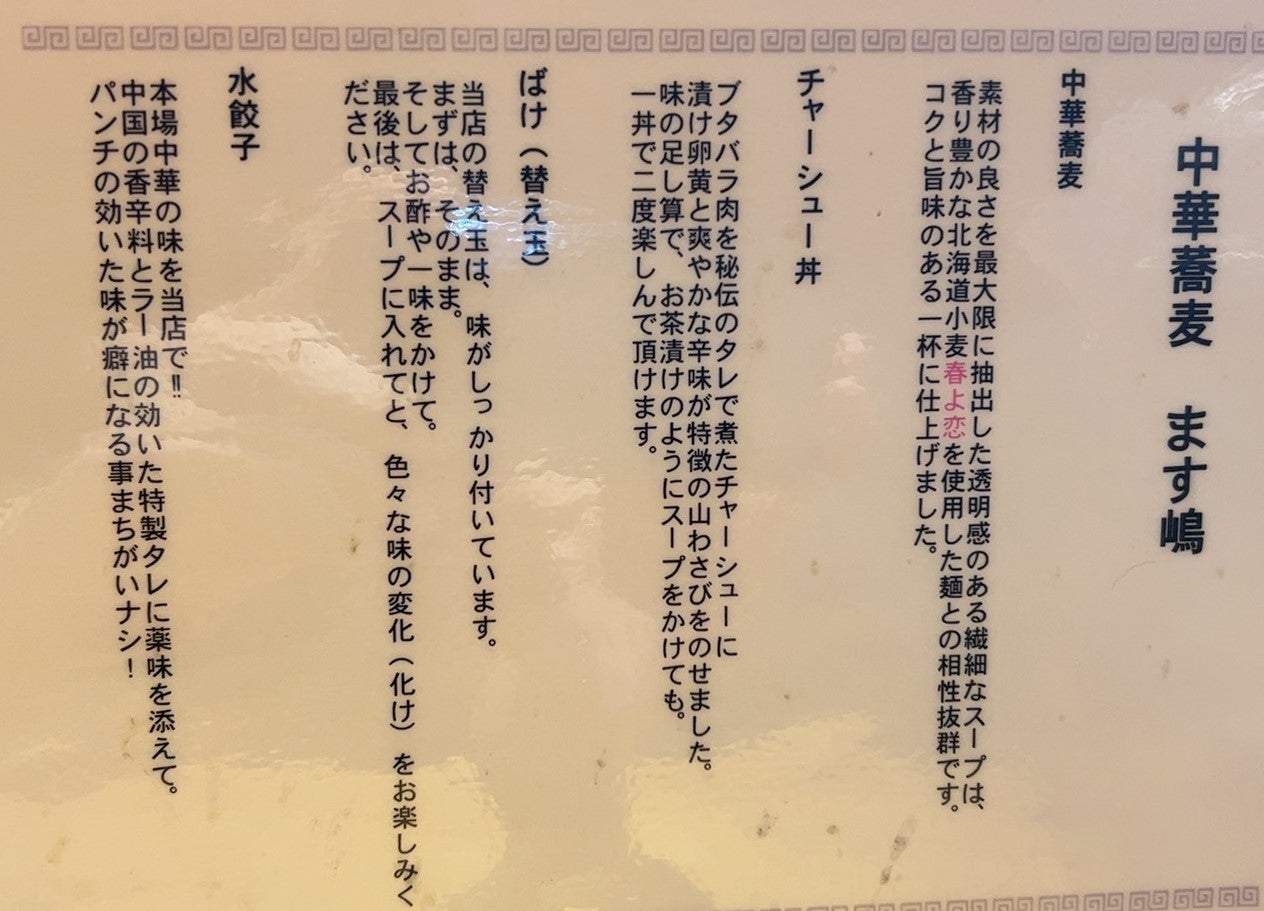 中華蕎麦　ます嶋
中華蕎麦
素材の良さを最大限に抽出した透明感のある繊細なスープは、
香り豊かな北海道小麦春よ恋を使用した麺との相性抜群です。
コクと旨味のある一杯に仕上げました。
チャーシュー丼
ブタバラ肉を秘伝のタレで煮たチャーシューに
漬け卵黄と爽やかな辛味が特徴の山わさびをのせました。
味の足し算で、お茶漬けのようにスープをかけても。
一丼で二度楽しんで頂けます。
ばけ（替え玉）
当店の替え玉は、味がしっかり付いています。
まずは、そのまま。
そしてお酢や一味をかけて。
最後は、スープに入れてと、色々な味の変化（化け）をお楽しみく
ださい。
水餃子
本場中華の味を当店で‼
中国の香辛料とラー油の効いた特製タレに薬味を添えて。
パンチの効いた味が癖になる事まちがいナシ！